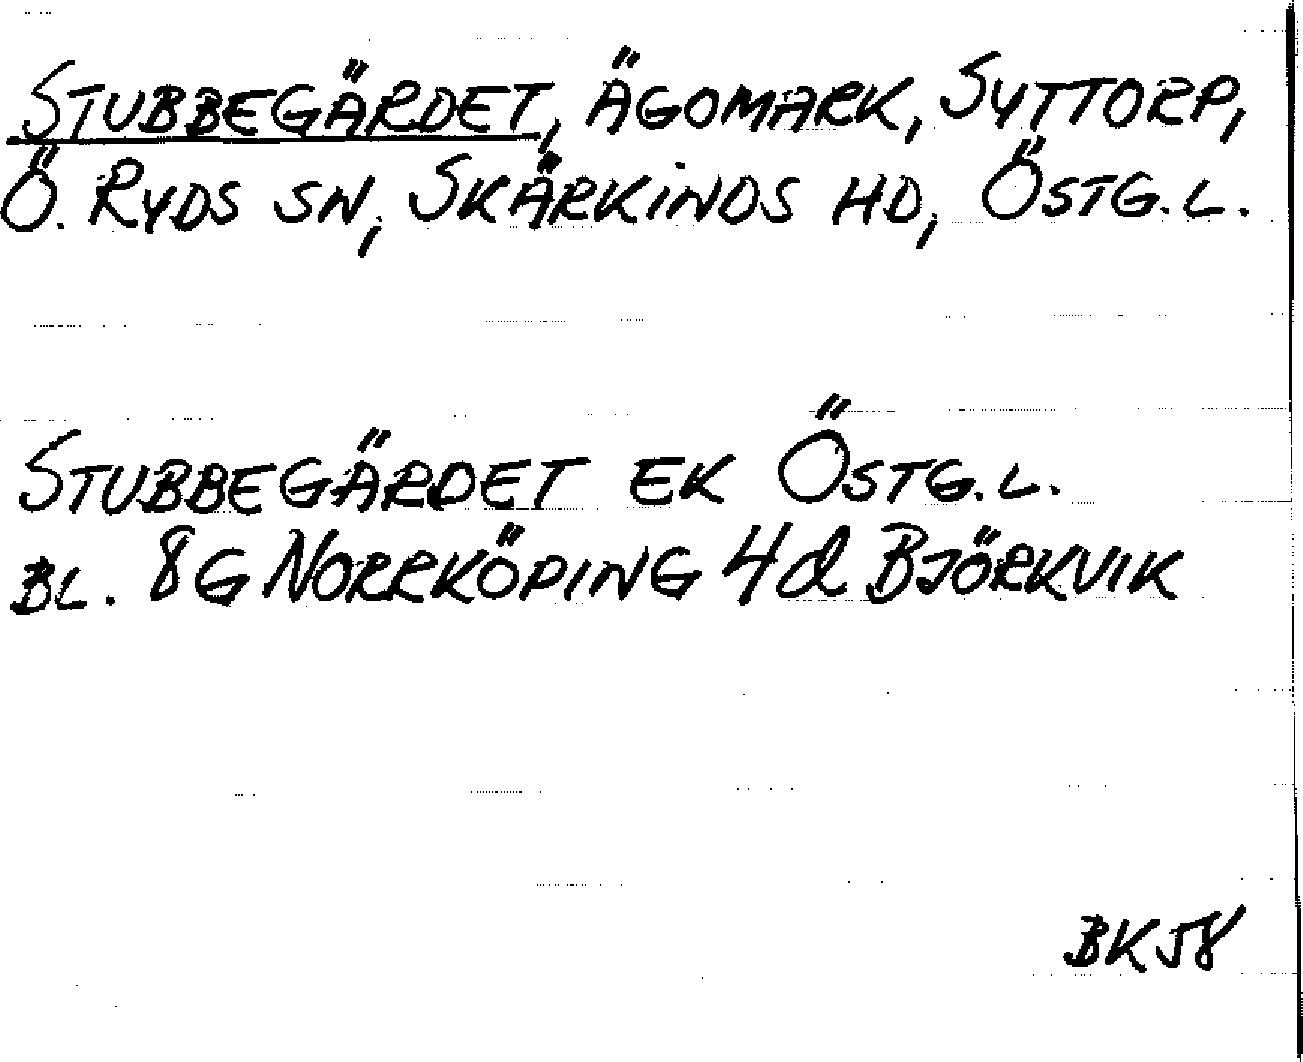 STUBBEGÄRDET, ÄGOMARK, SYTTORP,
Ö. RYDS SN, SKÄRKINDS HD, ÖSTG. L.
STUBBEGÄRDET EK ÖSTG. L.
BL. 8G NORRKÖPING 4d BJÖRKVIK
BK58